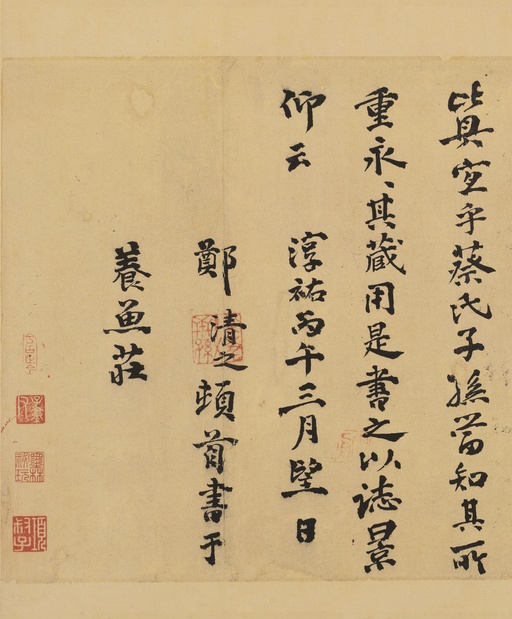 此真宜乎蔡氏子孫當知其所
重永〻其藏用是書之以誌景
仰云　淳祐丙午三月朢日
鄭清之頓首書于
養魚莊